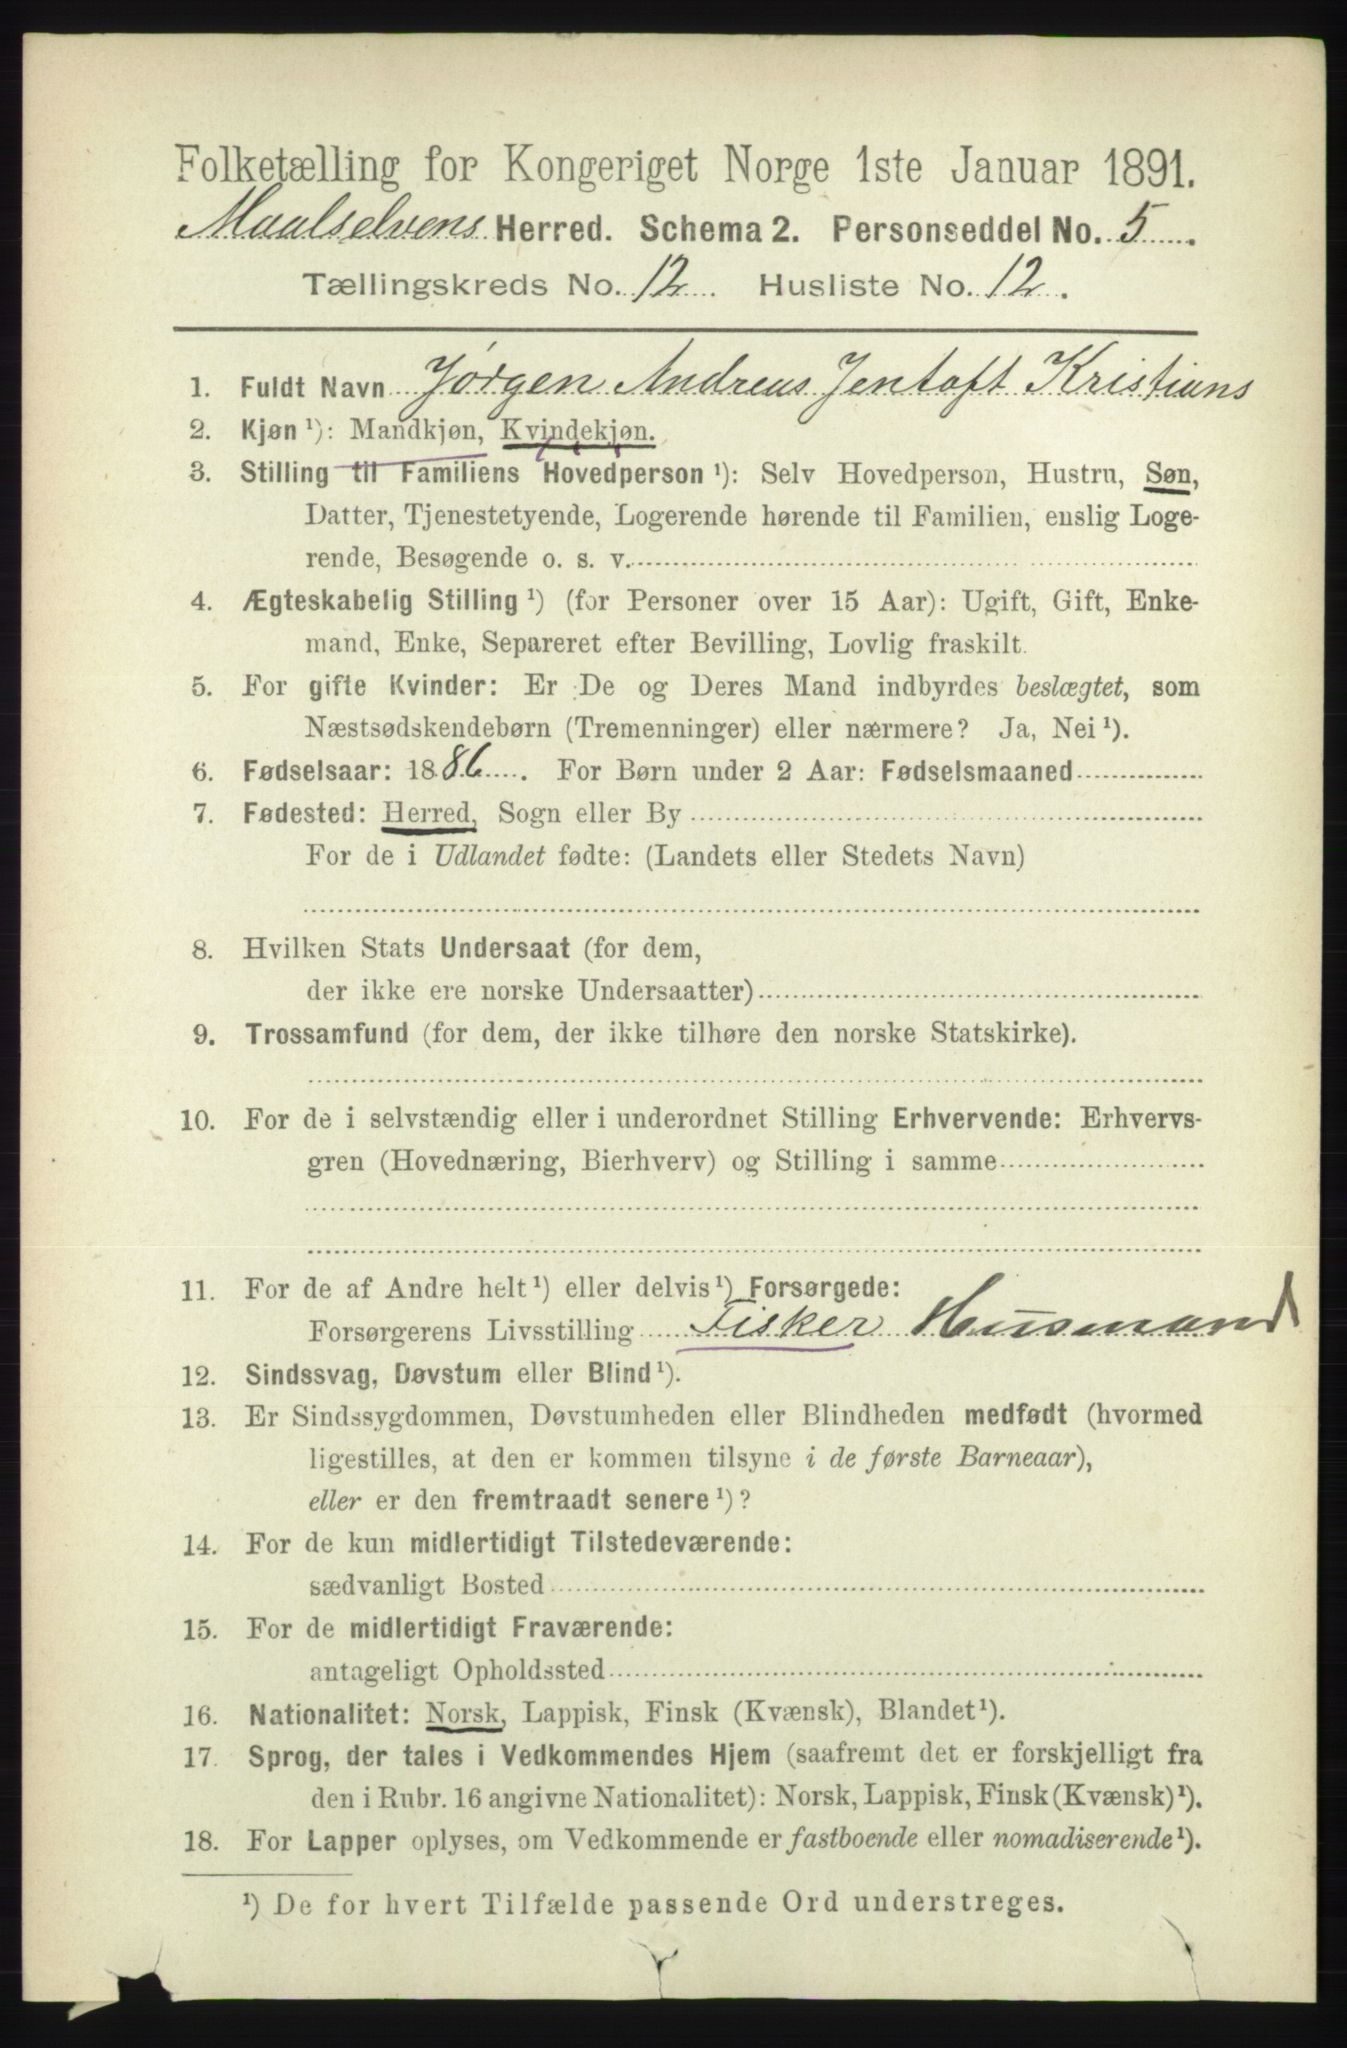 Folketælling for Kongeriget Norge 1ste Januar 1891.
Maalselvens Herred. Schema 2. Personseddel No. 5.
Tællingskreds No. 12. Husliste No. 12.
1. Fuldt Navn Jørgen Andreas Jentoft Kristians
2. Kjøn ¹): Mandkjøn, Kvindekjøn.
3. Stilling til Familiens Hovedperson ¹): Selv Hovedperson, Hustru, Søn,
Datter, Tjenestetyende, Logerende hørende til Familien, enslig Loge-
rende, Besøgende o. s. v.
4. Ægteskabelig Stilling ¹) (for Personer over 15 Aar): Ugift, Gift, Enke-
mand, Enke, Separeret efter Bevilling, Lovlig fraskilt.
5. For gifte Kvinder: Er De og Deres Mand indbyrdes beslægtet, som
Næstsødskendebørn (Tremenninger) eller nærmere? Ja, Nei ¹).
6. Fødselsaar: 1886. For Børn under 2 Aar: Fødselsmaaned
7. Fødested: Herred, Sogn eller By
For de i Udlandet fødte: (Landets eller Stedets Navn)
8. Hvilken Stats Undersaat (for dem,
der ikke ere norske Undersaatter)
9. Trossamfund (for dem, der ikke tilhøre den norske Statskirke).
10. For de i selvstændig eller i underordnet Stilling Erhvervende: Erhvervs-
gren (Hovednæring, Bierhverv) og Stilling i samme
11. For de af Andre helt ¹) eller delvis ¹) Forsørgede:
Forsørgerens Livsstilling Fisker Husmand
12. Sindssvag, Døvstum eller Blind ¹).
13. Er Sindssygdommen, Døvstumheden eller Blindheden medfødt (hvormed
ligestilles, at den er kommen tilsyne i de første Barneaar),
eller er den fremtraadt senere ¹)?
14. For de kun midlertidigt Tilstedeværende:
sædvanligt Bosted
15. For de midlertidigt Fraværende:
antageligt Opholdssted
16. Nationalitet: Norsk, Lappisk, Finsk (Kvænsk), Blandet ¹).
17. Sprog, der tales i Vedkommendes Hjem (saafremt det er forskjelligt fra
den i Rubr. 16 angivne Nationalitet): Norsk, Lappisk, Finsk (Kvænsk) ¹).
18. For Lapper oplyses, om Vedkommende er fastboende eller nomadiserende ¹).
¹) De for hvert Tilfælde passende Ord understreges.